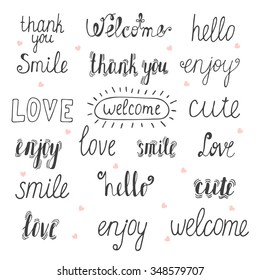 thank you Welcome hello
Smile thank you enjoy
LOVE welcome cute
enjoy love smile Love
smile hello cute
love enjoy welcome
shutterstock.com · 348579707